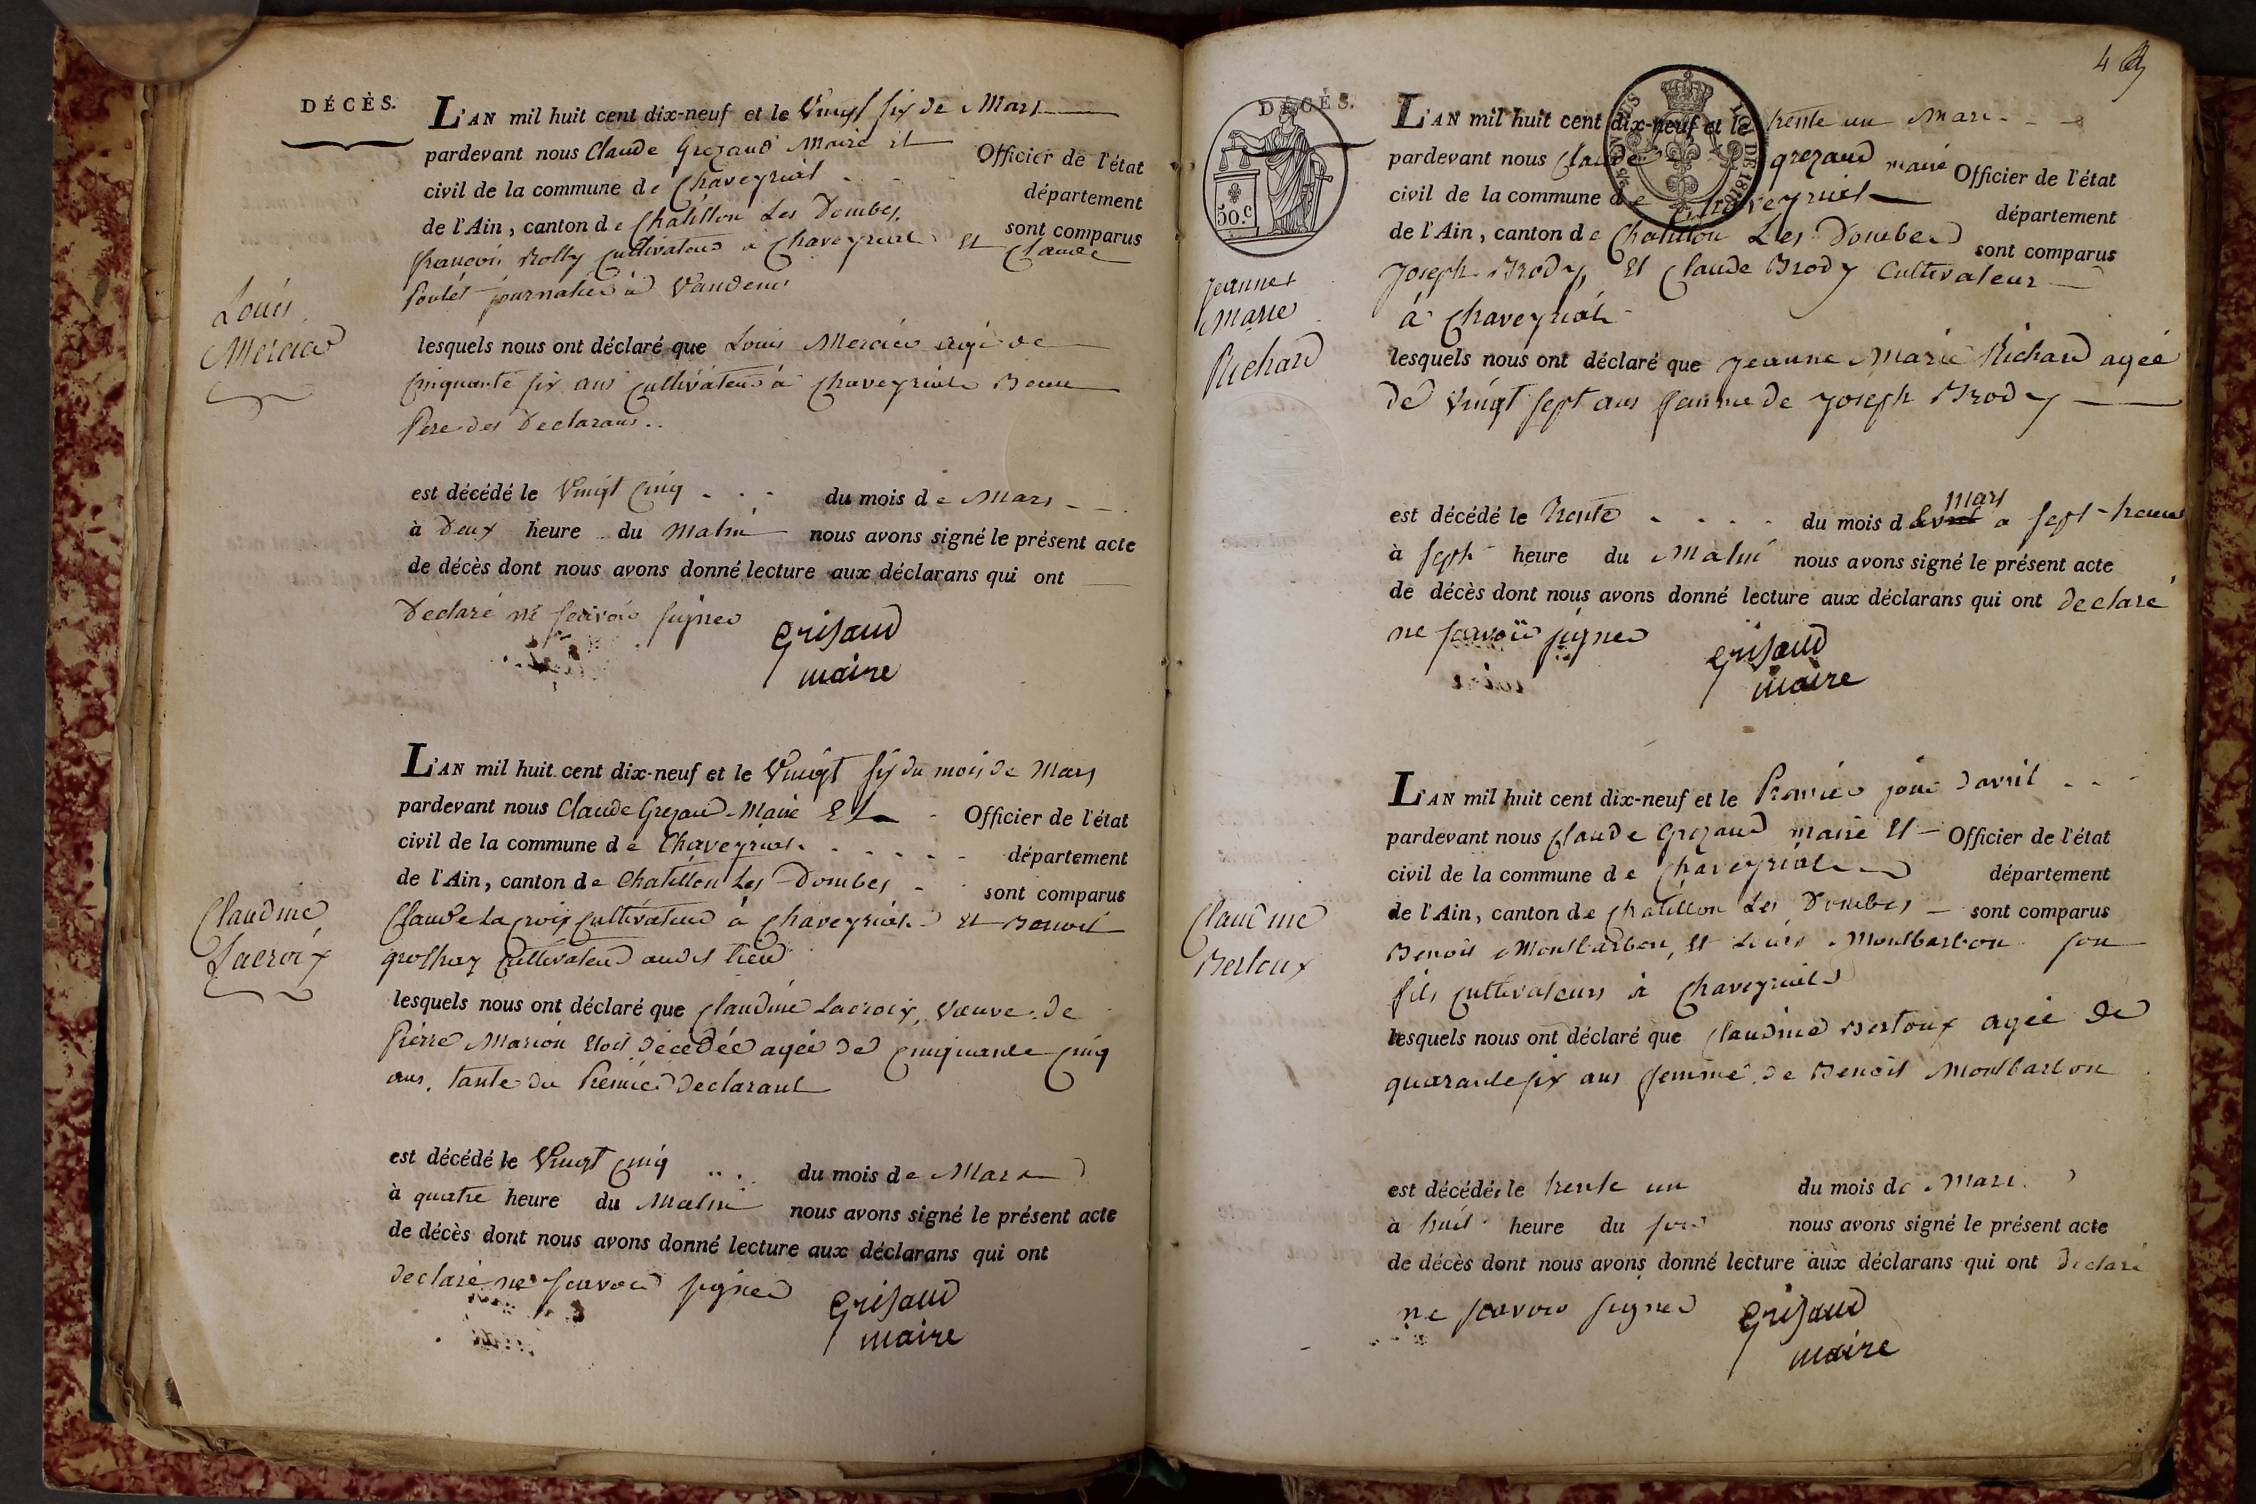 DÉCÈS.
L'AN mil huit cent dix-neuf et le Vingt six de Mars
pardevant nous Claude Grezaud Maire Et Officier de l'état
civil de la commune de Chaveyriat département
de l'Ain, canton de Chatillon Les Dombes, sont comparus
francois Rolly Cultivateur à Chaveyriat Et Claude
Poulet journalier à Vandeins
Louis
Mercier
lesquels nous ont déclaré que Louis Mercier agé de
Cinquante six ans cultivateur à Chaveyriat Beau
Pere des Declarans..
est décédé le Vingt Cinq du mois de Mars
à Deux heure du Matin nous avons signé le présent acte
de décès dont nous avons donné lecture aux déclarans qui ont
Declaré ne scavoir signer
Grisaud
maire
L'AN mil huit cent dix-neuf et le Vingt six du mois de Mars
pardevant nous Claude Grezaud Maire Et Officier de l'état
civil de la commune de Chaveyriat département
de l'Ain, canton de Chatillon Les Dombes sont comparus
Claudine
Lacroix
Claude Lacroix Cultivateur à Chaveyriat Et Benoit
Cultivateur audit lieu
lesquels nous ont déclaré que Claudine Lacroix, Veuve de
Pierre Marion Etoit décedée agée de Cinquante Cinq
ans, tante du Premier declarant
est décédé le Vingt Cinq du mois de Mars
à quatre heure du Matin nous avons signé le présent acte
de décès dont nous avons donné lecture aux déclarans qui ont
declaré ne scavoir signer
Grisaud
maire
4
DÉCÈS.
50.c
L'AN mil huit cent dix-neuf et le trente un Mars
pardevant nous Claude Grezaud maire Officier de l'état
civil de la commune de Chaveyriat département
de l'Ain, canton de Chatillon Les Dombes sont comparus
Joseph Brody Et Claude Brody Cultivateur
à Chaveyriat
Jeanne
Marie
Richard
lesquels nous ont déclaré que Jeanne Marie Richard agée
de Vingt sept ans femme de Joseph Brody
mars
est décédé le trente du mois d avril a sept heures
à sept heure du Matin nous avons signé le présent acte
de décès dont nous avons donné lecture aux déclarans qui ont declaré
ne scavoir signer
Grisaud
maire
L'AN mil huit cent dix-neuf et le Premier jour d'avril
pardevant nous Claude Grezaud maire Et Officier de l'état
civil de la commune de Chaveyriat département
de l'Ain, canton de Chatillon Les Dombes sont comparus
Claudine
Bertoux
Benoit Montbarbon, Et Louis Montbarbon son
fils cultivateurs à Chaveyriat
lesquels nous ont déclaré que Claudine Bertoux agée de
quarante six ans femme de Benoit Montbarbon
est décédée le trente un du mois de Mars
à huit heure du soir nous avons signé le présent acte
de décès dont nous avons donné lecture aux déclarans qui ont declaré
ne scavoir signer
Grisaud
maire